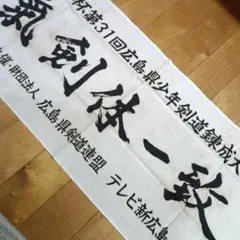 杯第31回広島県少年剣道錬成大
氣剣体一致
主催 財団法人 広島県剣道連盟 テレビ新広島